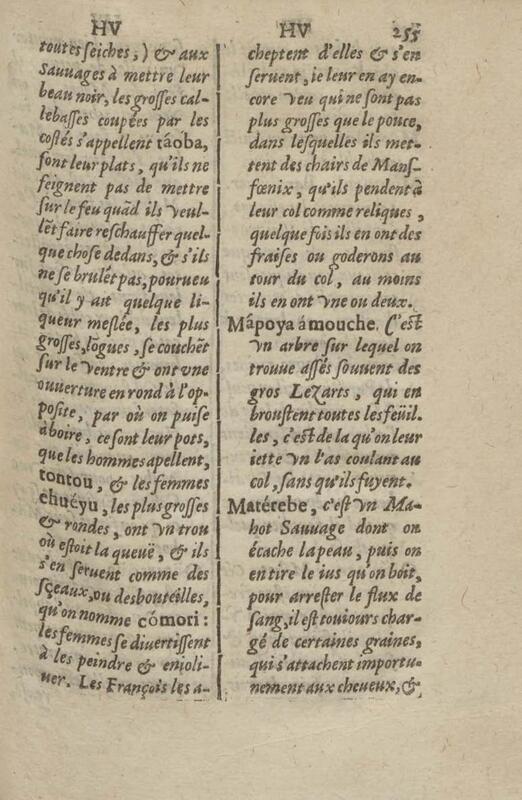 HV HV 255
toutes seiches,) & aux
Sauuages à mettre leur
beau noir, les grosses cal-
lebasses coupées par les
costés s'appellent táoba,
sont leur plats, qu'ils ne
feignent pas de mettre
sur le feu quād ils veul-
lẽt faire reschauffer quel-
que chose dedans, & s'ils
ne se brulẽt pas, pourueu
qu'il y ait quelque li-
queur meslée, les plus
grosses, lõgues, se couchẽt
sur le ventre & ont vne
ouuerture en rond à l'op-
posite, par où on puise
à boire, ce sont leur pots,
que les hommes apellent,
tontou, & les femmes
chuéyu, les plus grosses
& rondes, ont vn trou
où estoit la queuë, & ils
s'en seruent comme des
sçeaux, ou des bouteilles,
qu'on nomme cômori:
les femmes se diuertissent
à les peindre & enioli-
uer. Les François les a-
cheptent d'elles & s'en
seruent, ie leur en ay en-
core veu qui ne sont pas
plus grosses que le pouce,
dans lesquelles ils met-
tent des chairs de Mans-
fœnix, qu'ils pendent à
leur col comme reliques,
quelque fois ils en ont des
fraises ou goderons au
tour du col, au moins
ils en ont vne ou deux.
Mâpoya á mouche. C'est
vn arbre sur lequel on
trouue assés souuent des
gros Lezarts, qui en
broustent toutes les feüil-
les, c'est de la qu'on leur
iette vn l'as coulant au
col, sans qu'ils fuyent.
Matérebe, c'est vn Ma-
hot Sauuage dont on
écache la peau, puis on
en tire le ius qu'on boit,
pour arrester le flux de
sang, il est toujours char-
gé de certaines graines,
qui s'attachent importu-
nement aux cheueux, &